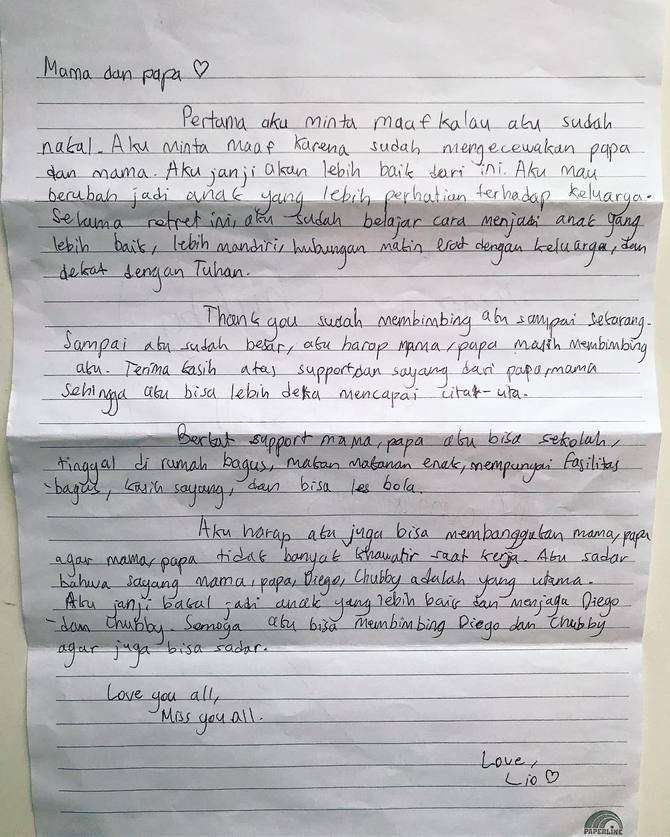 Mama dan papa ♡
Pertama aku minta maaf kalau aku sudah
nakal. Aku minta maaf karena sudah mengecewakan papa
dan mama. Aku janji akan lebih baik dari ini. Aku mau
berubah jadi anak yang lebih perhatian terhadap keluarga.
Selama retret ini, aku sudah belajar cara menjadi anak yang
lebih baik, lebih mandiri, hubungan makin erat dengan keluarga, dan
dekat dengan Tuhan.
Thank you sudah membimbing aku sampai sekarang.
Sampai aku sudah besar, aku harap mama, papa masih membimbing
aku. Terima kasih atas support dan sayang dari papa, mama
sehingga aku bisa lebih deka mencapai cita-cita.
Berkat support mama, papa aku bisa sekolah,
tinggal di rumah bagus, makan makanan enak, mempunyai fasilitas
bagus, kasih sayang, dan bisa les bola.
Aku harap aku juga bisa membanggakan mama, papa
agar mama, papa tidak banyak khawatir saat kerja. Aku sadar
bahwa sayang mama, papa, Diego, Chubby adalah yang utama.
Aku janji bakal jadi anak yang lebih baik dan menjaga Diego
dan Chubby. Semoga aku bisa membimbing Diego dan Chubby
agar juga bisa sadar.
Love you all,
Miss you all.
Love,
Lio ♡
PAPERLINE